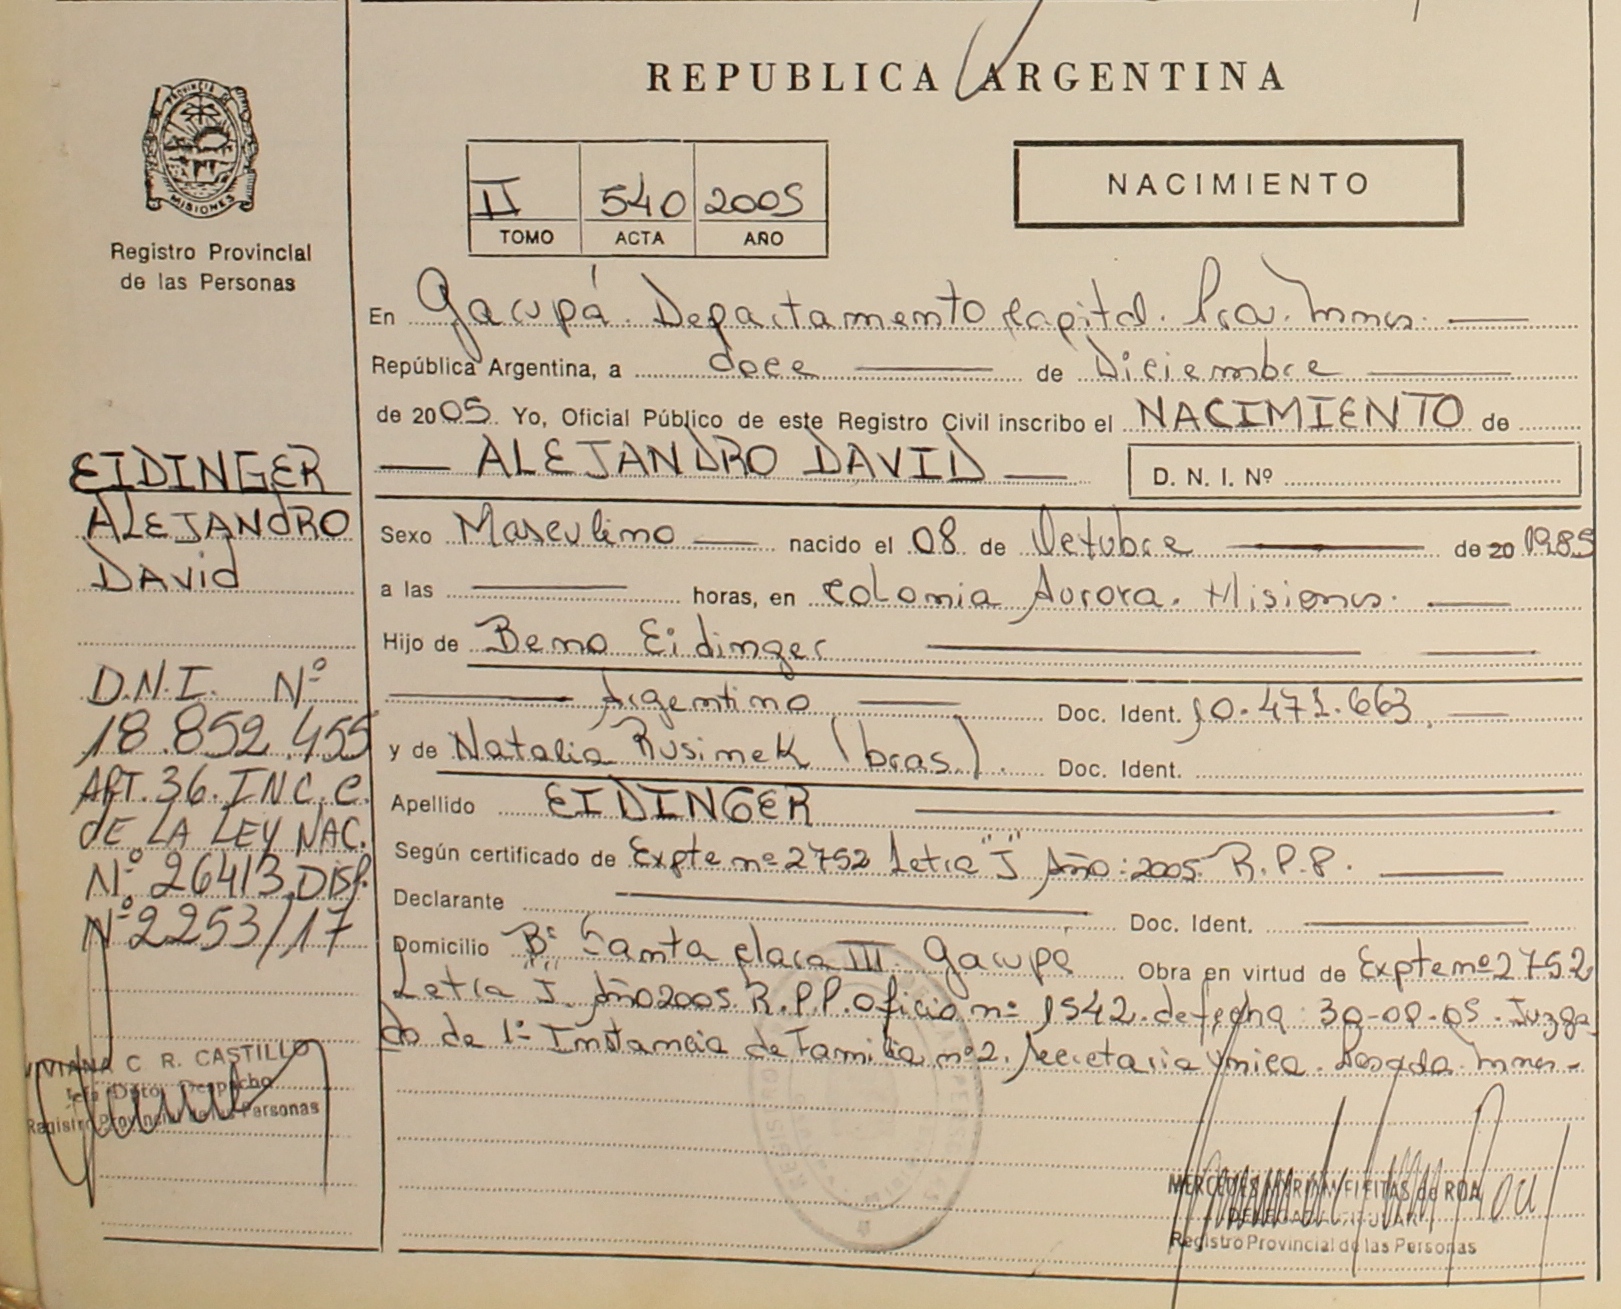 PROVINCIA DE
MISIONES
Registro Provincial
de las Personas
EIDINGER
ALEJANDRO
DAVID
D.N.I. Nº
18.852.455
ART.36.INC.C.
dE LA LEY NAC.
Nº 26413,DISP.
Nº2253/17
VIVIANA C. R. CASTILLO
Jefa Dpto. Despacho
Registro Provincial de las Personas
REPUBLICA ARGENTINA
II 540 2005
TOMO ACTA AÑO
NACIMIENTO
En Garupá. Departamento Capital. Pcia. Mnes.
República Argentina, a doce de Diciembre
de 2005. Yo, Oficial Público de este Registro Civil inscribo el NACIMIENTO de
ALEJANDRO DAVID D. N. I. Nº
Sexo Masculino nacido el 08 de Octubre de 20 1985
a las horas, en Colonia Aurora. Misiones.
Hijo de Beno Eidinger
Argentino Doc. Ident. 10.471.663.
y de Natalia Rusinek (bras.). Doc. Ident.
Apellido EIDINGER
Según certificado de Expte nº 2752 Letra "J" Año: 2005 R.P.P.
Declarante Doc. Ident.
Domicilio Bº Santa Clara III Garupá Obra en virtud de Expte nº 2752
Letra "J". Año 2005 R.P.P. Oficio nº 1542. de fecha: 30-09-05. Juzga
do de 1º Instancia de Familia nº 2. Secretaria Unica. Posadas. Mnes.-
MERCEDES MYRIAM FREITAS de ROA
DELEGADA TITULAR
Registro Provincial de las Personas